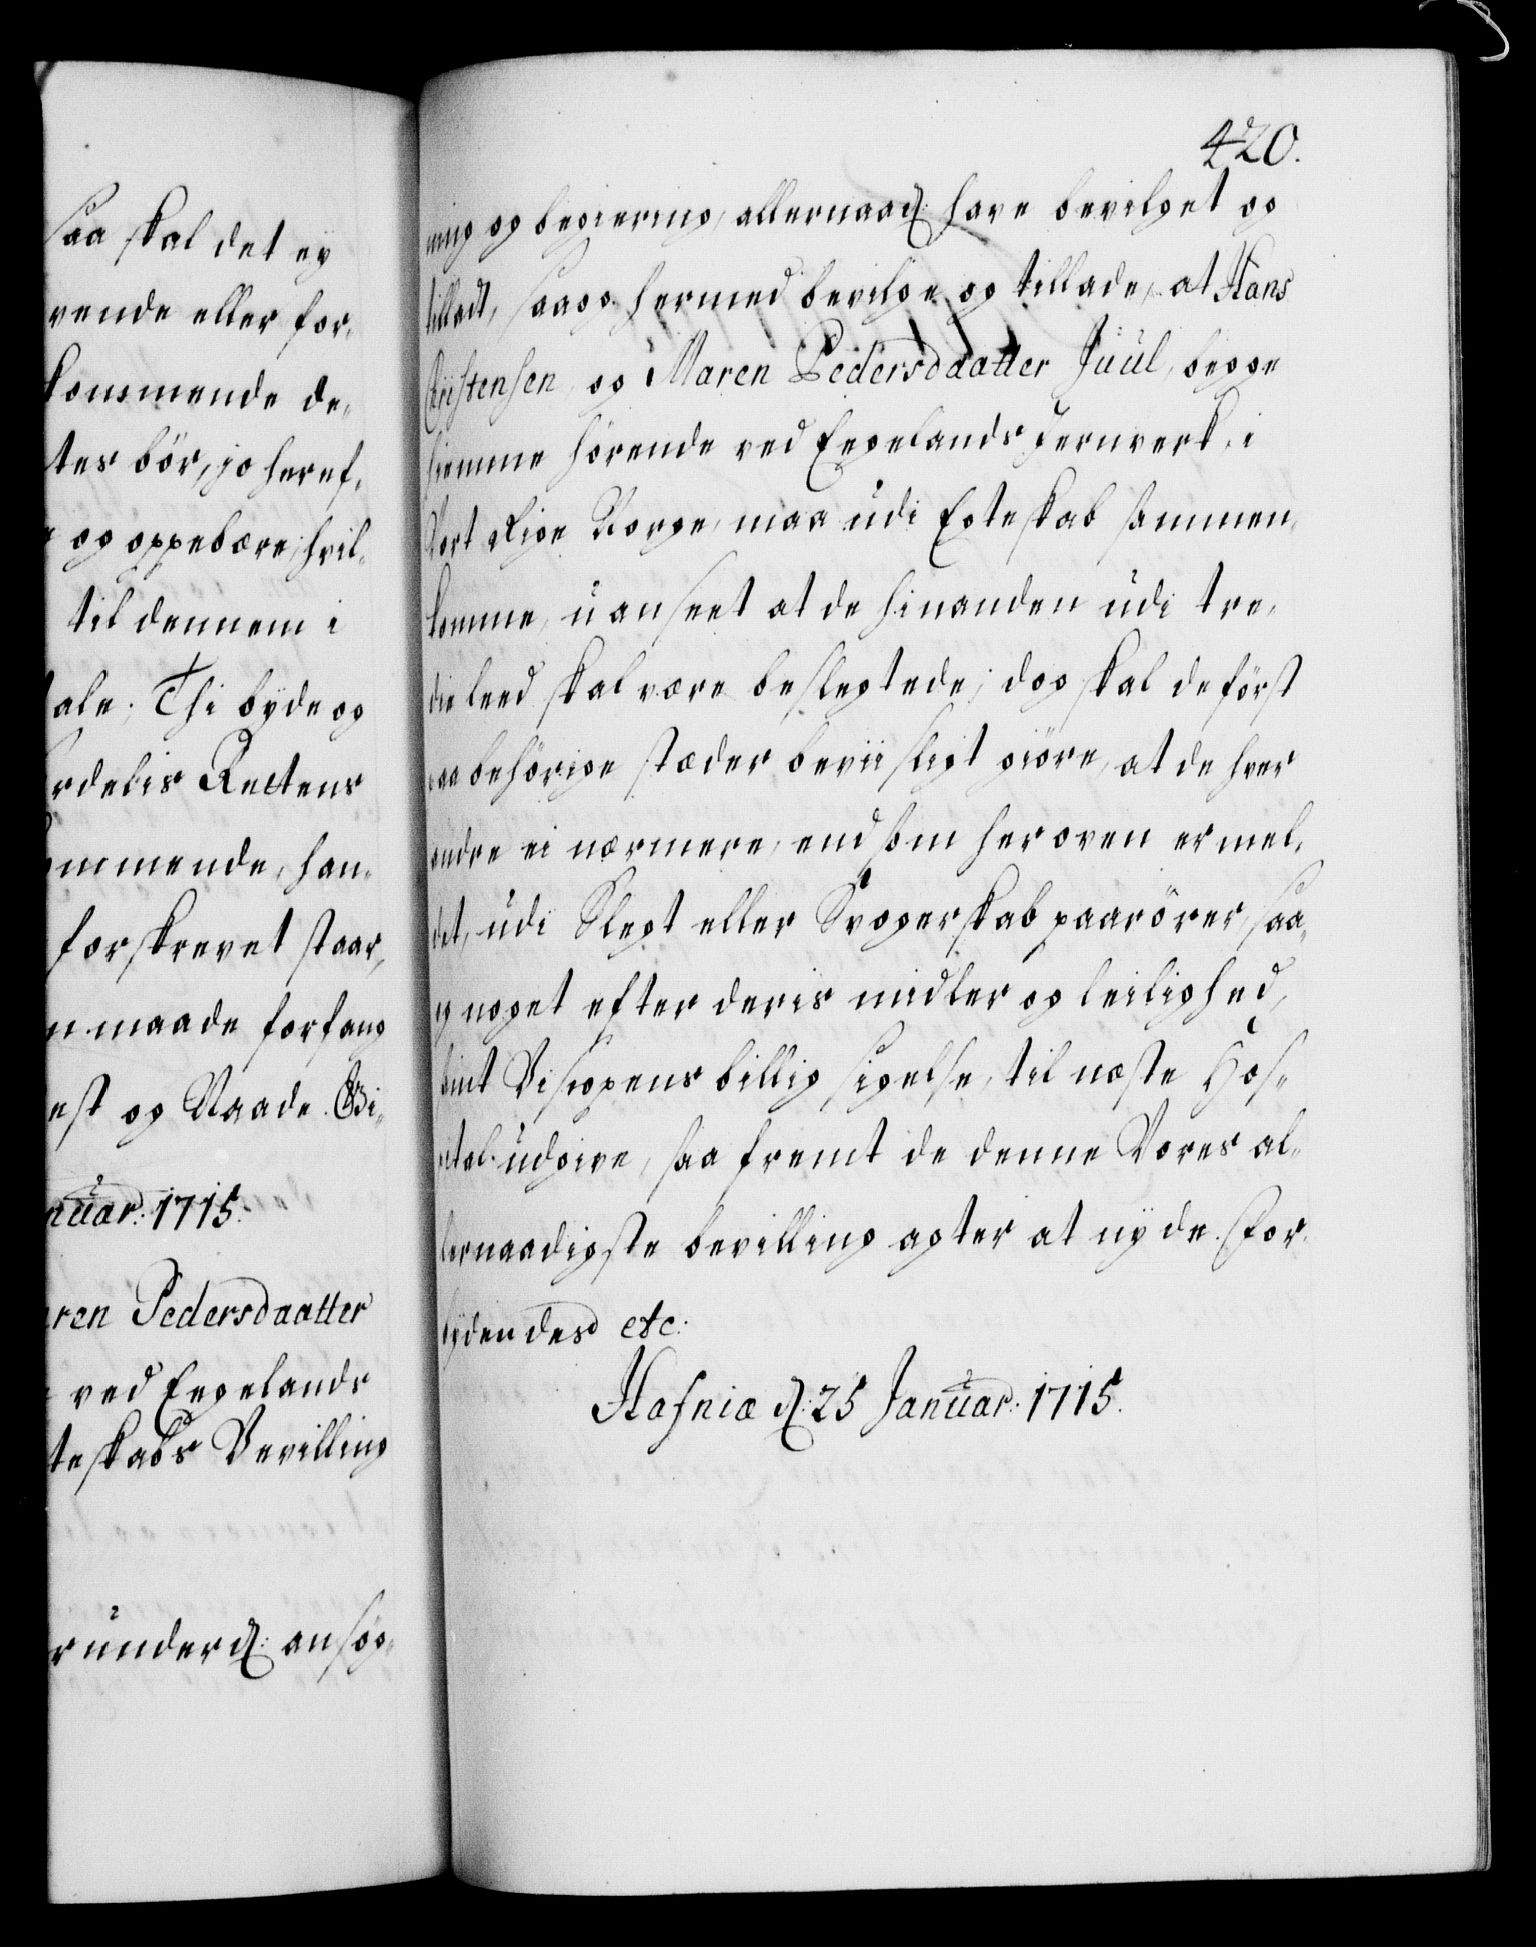 saa skal det ey
vende eller for,
kommende de,
tes bör, jo heref,
og oppebære, hvil,
til dennem i
tale; Thi byde og
rdelis Rettens
ommende, han,
forskrevet staar,
n maade forfang
est og Naade. Gi,
nuar: 1715.
ren Pedersdaatter
ved Eegelands
teskabs Bevilling
runderd: ansög,
420.
ning og begiering, allernaad: have bevilget og
tilladt, saa og hermed bevilge og tillade, at Hans
Christensen, og Maren Pedersdaatter Juul, begge
hiemme hörende ved Eegelands Jernverk, i
Vort Rige Norge, maa udi Egteskab sammen,
komme, uanseet at de hinanden udi tre,
die leed skal være beslegtede; dog skal de först
paa behörige stæder beviisligt giöre, at de hver
andre ei nærmere, end som her oven er mel,
det, udi Slegt eller Svogerskab paarörer, saa,
og noget efter deris midler og leilighed,
samt Biscopens billig sigelse, til næste Hos,
pital udgive, saa fremt de denne Vores al,
lernaadigste bevilling agter at nyde. For,
bydendes etc:
Hafniæ d: 25 Januar: 1715.